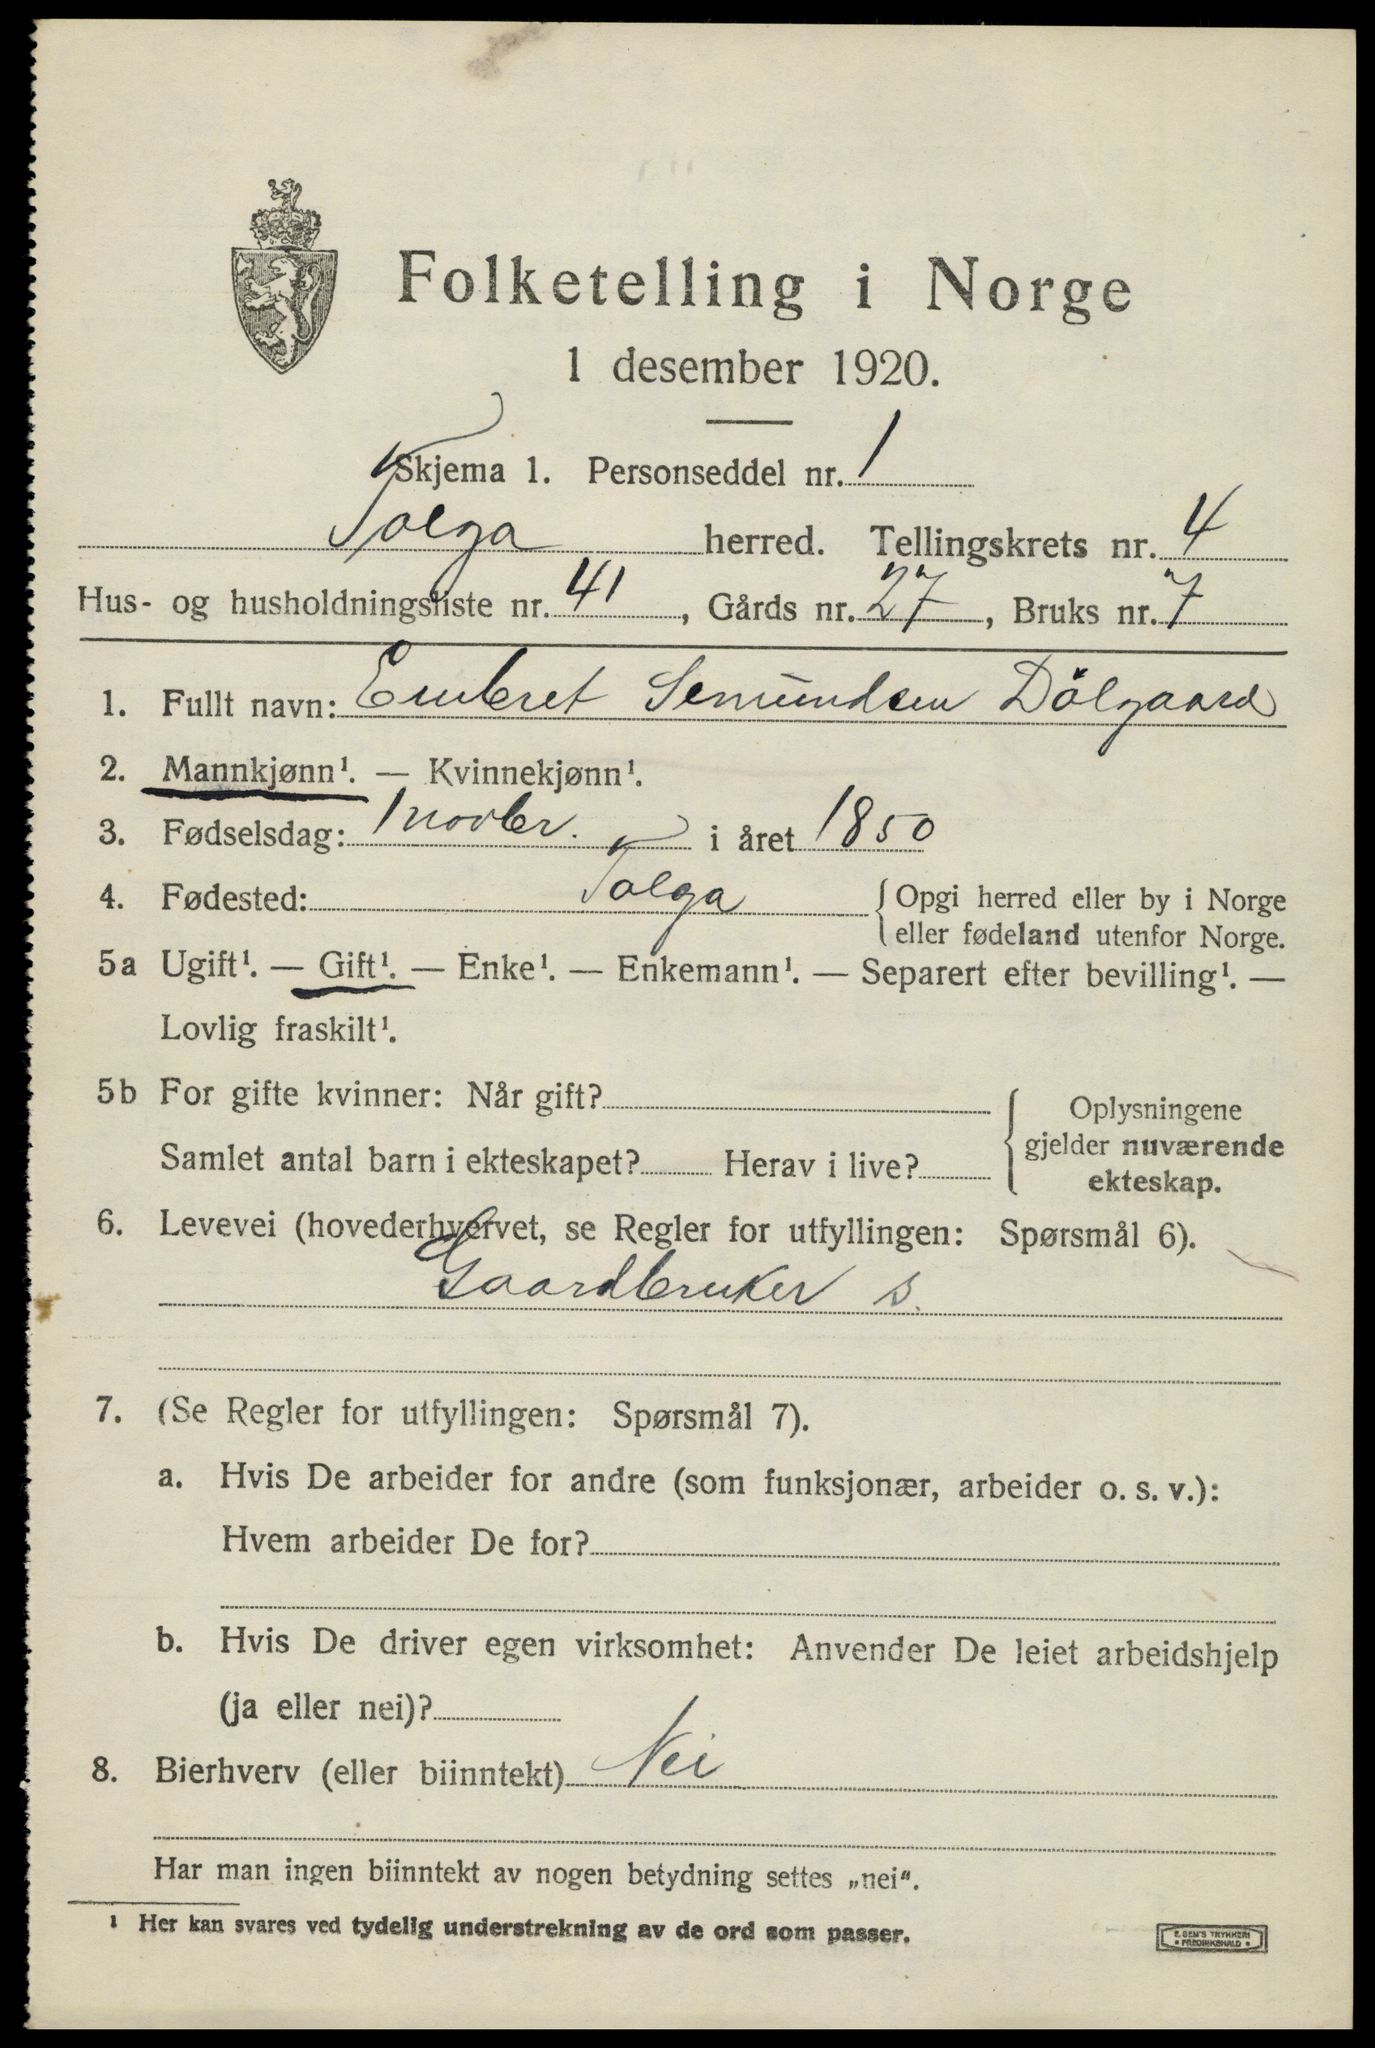 Folketelling i Norge
1 desember 1920.
Skjema 1. Personseddel nr. 1
Tolga herred. Tellingskrets nr. 4
Hus- og husholdningsliste nr. 41, Gårds nr. 27, Bruks nr. 7
1. Fullt navn: Embret Semundsen Dölgaard
2. Mannkjønn¹. — Kvinnekjønn¹.
3. Fødselsdag: 1 novbr. i året 1850
4. Fødested: Tolga {Opgi herred eller by i Norge
eller fødeland utenfor Norge.
5a Ugift¹. — Gift¹. — Enke¹. — Enkemann¹. — Separert efter bevilling¹. —
Lovlig fraskilt¹.
5b For gifte kvinner: Når gift?
Samlet antal barn i ekteskapet? Herav i live?
{Oplysningene
gjelder nuværende
ekteskap.
6. Levevei (hovederhvervet, se Regler for utfyllingen: Spørsmål 6).
Gaardbruker s.
7. (Se Regler for utfyllingen: Spørsmål 7).
a. Hvis De arbeider for andre (som funksjonær, arbeider o. s. v.):
Hvem arbeider De for?
b. Hvis De driver egen virksomhet: Anvender De leiet arbeidshjelp
(ja eller nei)?
8. Bierhverv (eller biinntekt) Nei
Har man ingen biinntekt av nogen betydning settes „nei“.
¹ Her kan svares ved tydelig understrekning av de ord som passer.
E. SEM'S TRYKKERI
• FREDRIKSHALD •